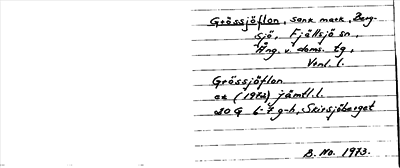 Grössjöflon, sank mark, Berg-
sjö, Fjällsjö sn,
Ång. v. doms. tg,
Vnl. l.
Grössjöflon
ek (1972) jämtl. l.
20G 6-7 g-h, Skirsjöberget
B. No. 1973.